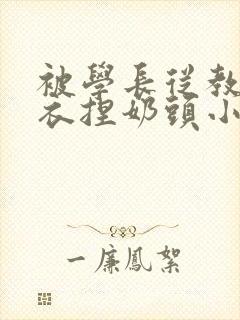 被學長從教
衣捏奶頭小
一廉鳳絮